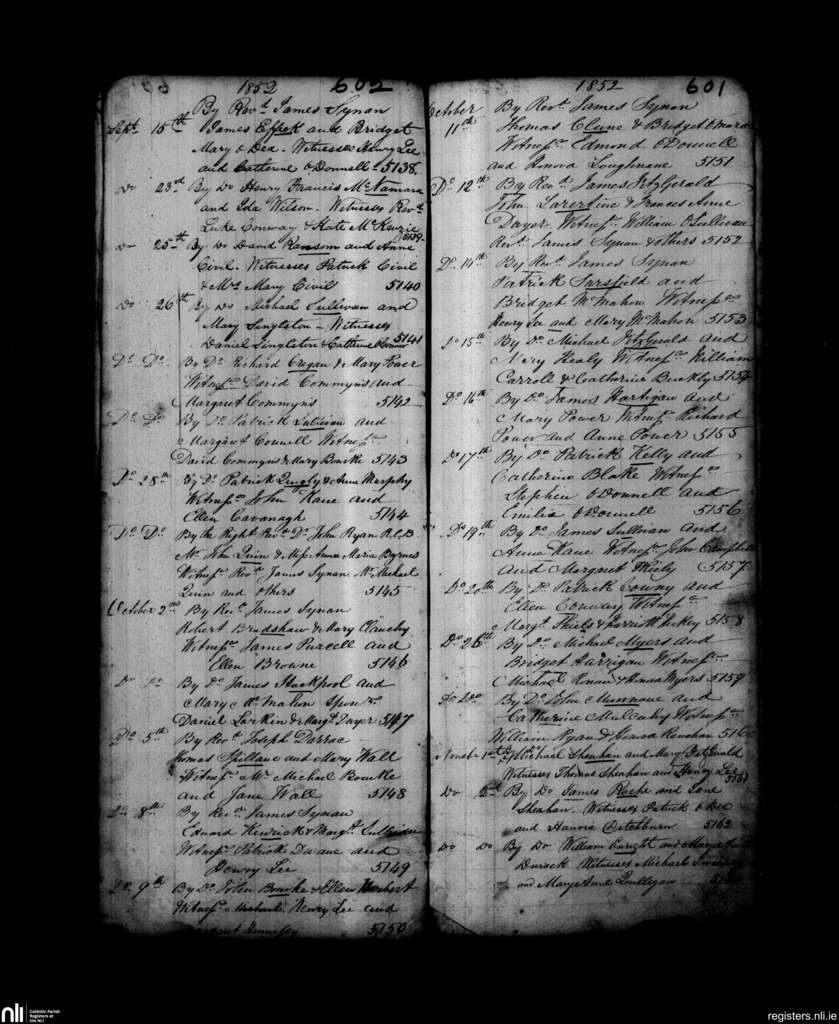 1852 602
By Revd. James Synan
Sept. 15th James and Bridget
Mary O Dea. Witnesses Henry Lee
and Catherine O'Donnell 5138.
Do 23rd By Do Henry Francis McNamara
and Ida Wilson. Witnesses Revd.
Luke Conway & Kate McKenzie 5139
Do 25th By Do David Ransom and Anne
Civil. Witnesses Patrick Civil
& Mrs Mary Civil 5140
Do 26th By Do Michael Sullivan and
Mary Singleton - Witnesses
Daniel Singleton & Catherine 5141
Do. Do. By Do. Richard Cregan & Mary Power
Witnesses David Commyns and
Margaret Commyns 5142
Do. Do. By Do. Patrick Sullivan and
Margaret Connell Witnesses
David Commyns & Mary Bourke 5143
Do. 28th By Do. Patrick Quigly & Anne Murphy
Witnesses John Kane and
Ellen Cavanagh 5144
Do. Do. By the Right Revd. Dr. John Ryan R.C.B
Mr. John Quin & Miss Anna Maria Byrnes
Witnesses Revd. James Synan Mr. Michael
Quin and others 5145
October 2nd By Revd. James Synan
Robert Bradshaw & Mary Clanchy
Witnesses James Purcell and
Ellen Browne 5146
Do Do By Do. James Stackpool and
Mary McMahon Sponrs
Daniel Larkin & Margt. Dwyer 5147
Do. 5th By Revd. Joseph
Thomas Spillane and Mary Wall
Witness Mr. Michael Rourke
and Jane Wall 5148
Do. 8th By Revd. James Synan
Edward Kenrick & Margt. Sullivan
Witness Patrick Duane and
Henry Lee 5149
Do. 9th By Do. John Bourke & Ellen Herbert
Witness Michael, Henry Lee and
Margaret Hennessy 5150
1852 601
October By Revd. James Synan
11th Thomas Clune & Bridget O'Meara
Witnesses Edmond O'Donnell
and Honora Loughnane 5151
Do. 12th By Revd. James FitzGerald
John & Frances Anne
Dwyer. Witness William O'Sullivan
Revd. James Synan & others 5152
Do. 14th By Revd. James Synan
Patrick Sarsfield and
Bridget McMahon Witnesses
Henry Lee and Mary McMahon 5153
Do. 15th By Do. Michael FitzGerald and
Mary Healy Witnesses William
Carroll & Catherine Buckly 5154
Do. 16th By Do. James Hartigan and
Mary Power Witnesses Richard
Power and Anne Power 5155
Do 17th By Do. Patrick Kelly and
Catherine Blake Witnesses
Stephen O'Donnell and
Emilia O'Donnell 5156
Do. 19th By Do. James Sullivan and
Anne Kane Witnesses John Campbell
and Margaret Healy 5157
Do. 20th By Do. Patrick and
Ellen Conway Witnesses
Margt. Shiels & Harriott 5158
Do. 26th By Do. Michael Myers and
Bridget Harrigan Witnesses
Michael & Honora Myers 5159
Do Do. By Do. John Munnane and
Catherine Mulcahy Witnesses
William Ryan & Honora 5160
Novebr 1st By Do Michael Sheahan and Mary FitzGerald
Witnesses Thomas Sheahan and Henry Lee 5161
Do 2nd By Do James and Jane
Sheahan. Witnesses Patrick O Dea
and Hanora Ditchburn 5162
Do Do By Do William Enright and
Durack Witnesses Michael
and Mary Anne Quilligan
nli
Catholic Parish
Registers at
the NLI
registers.nli.ie